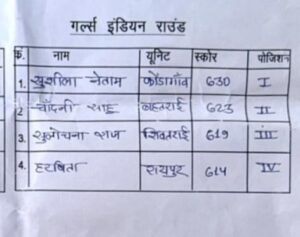 गर्ल्स इंडियन राउंड
क्र. नाम यूनिट स्कोर पोजिशन
1. सुशीला नेताम कोंडागाँव 630 I
2. चाँदनी साहू 623 II
3. सुलोचना राज शिवतराई 619 III
4. हरबिता रायपुर 614 IV